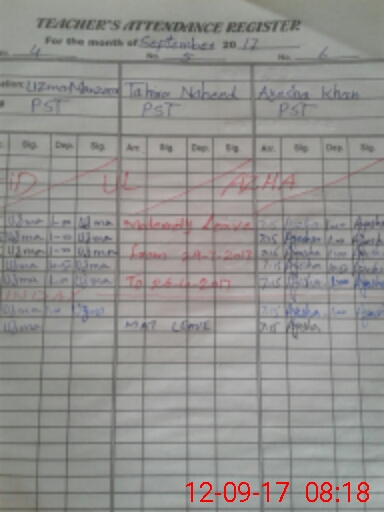 TEACHER'S ATTENDANCE REGISTER
For the month of September 2017
No. 4 No. 5 No. 6
Uzma Manzoor Tahira Naheed Ayesha Khan
PST PST PST
Sig. Dep. Sig. Arr. Sig. Dep. Sig. Arr. Sig. Dep. Sig.
ID UL AZHA
Uzma 1-00 Uzma Maternity Leave 7:15 Ayesha 1:00 Ayesha
Uzma 1-00 Uzma 7:15 Ayesha 1:00 Ayesha
Uzma 1-00 Uzma from 7:15 Ayesha 1:00 Ayesha
Uzma Uzma 7:15 Ayesha Ayesha
Uzma 1-00 Uzma To 7:15 Ayesha 1:00 Ayesha
Uzma 1:00 Uzma 7:15 Ayesha 1:00 Ayesha
Uzma MAT LEAVE 7:15 Ayesha
12-09-17 08:18